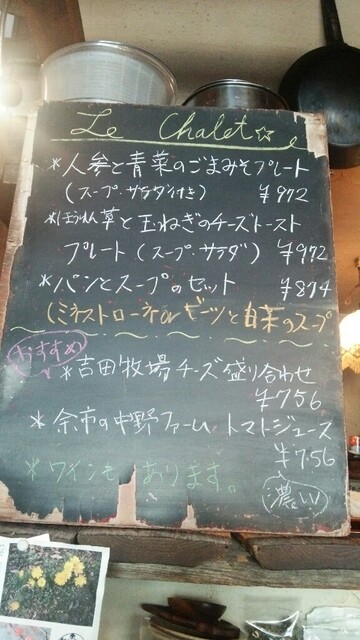 Le Chalet☆
*人参と青菜のごまみそプレート
(スープ・サラダ付き) ¥972
*ほうれん草と玉ねぎのチーズトースト
プレート(スープ・サラダ) ¥972
*パンとスープのセット ¥874
(ミネストローネorビーツと白菜のスープ
おすすめ
*吉田牧場チーズ盛り合わせ
¥756
*余市の中野ファーム トマトジュース
¥756
濃いい
*ワインもあります。